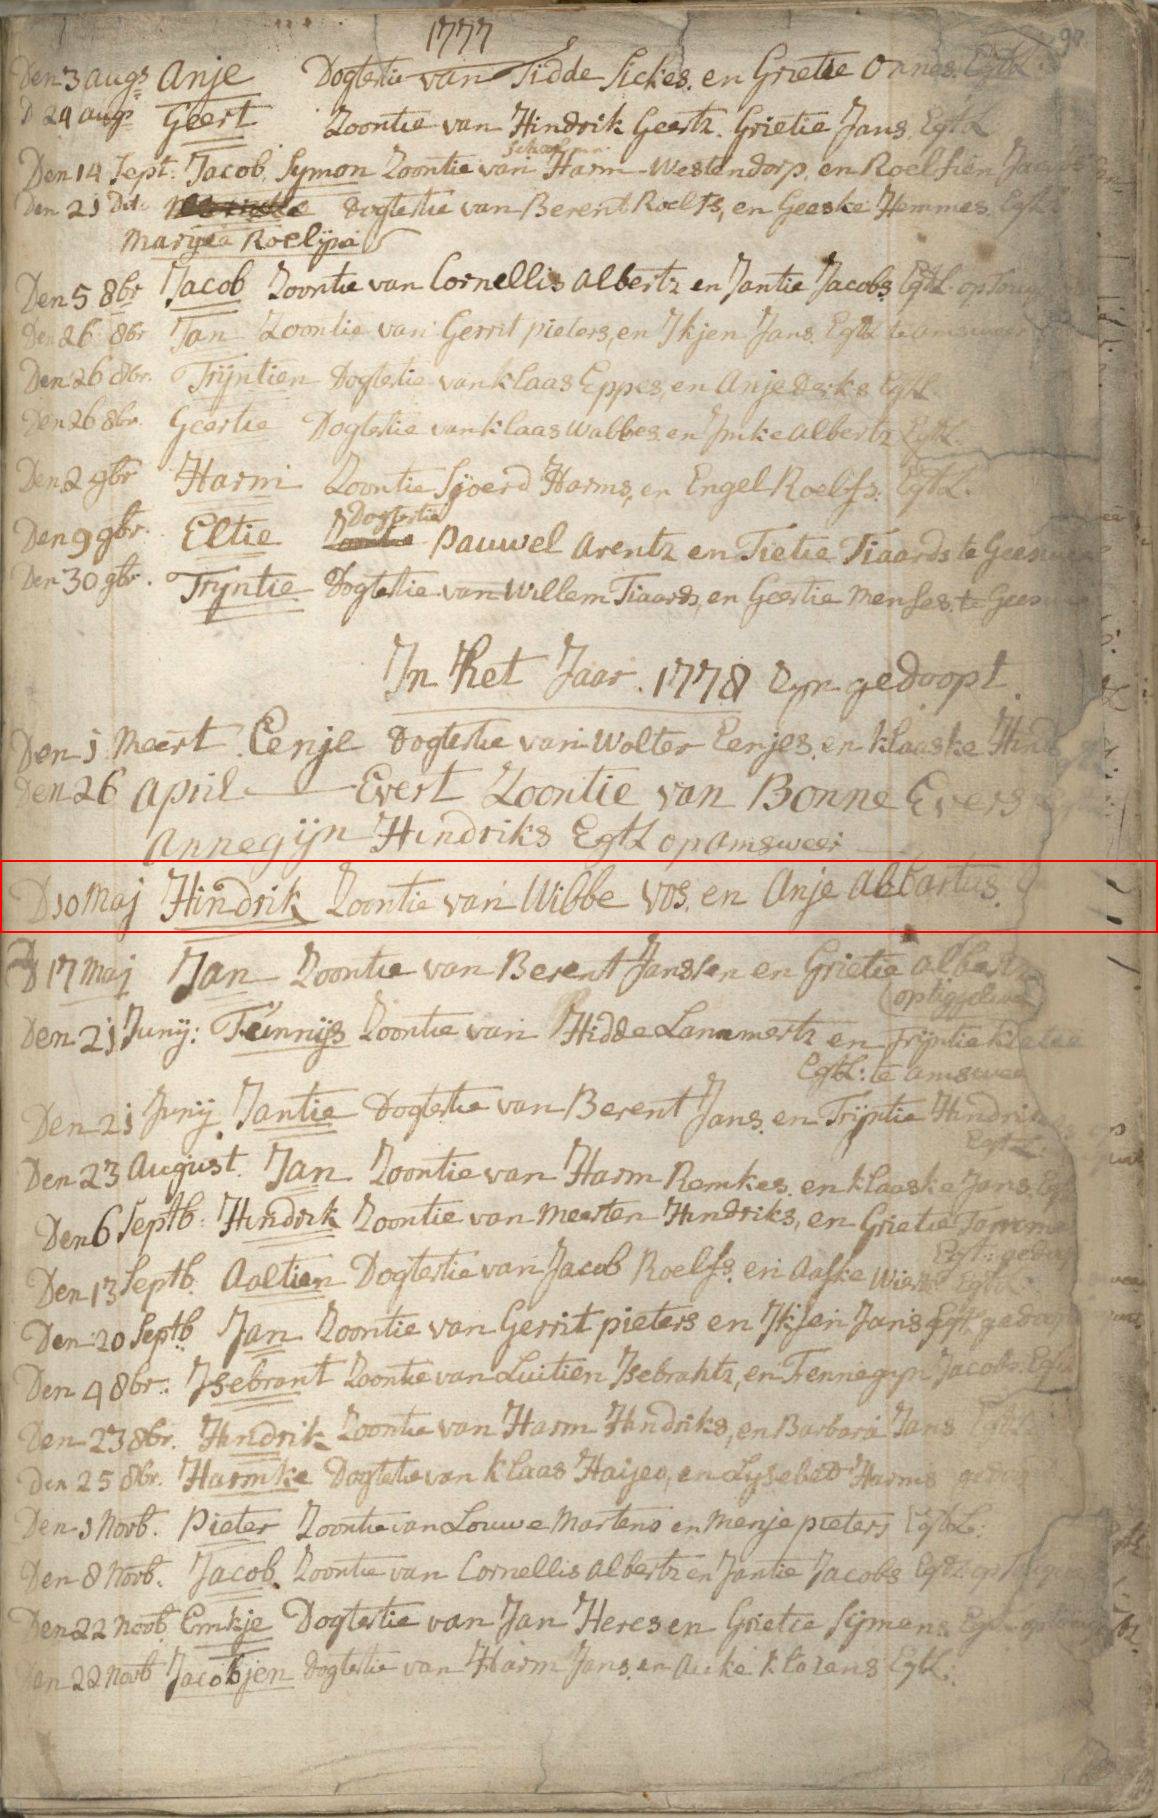 1777
Den 3 augs Anje Dogtertie van Tidde Sickes en Grietie Onnes. Egtl.
D 24 augs Geert Zoontie van Hindrik Geertz. Grietie Jans. Egtl
Den 14 Sept: Jacob Symon Zoontie van Harm Westendorp, en Roelfien
Den 21 Dito Dogtertie van Berent Roelfs, en Geeske Hemmes. Egtl.
Maryea Roelijna
Den 5 8br Jacob Zoontie van Cornellis Albertz en Jantie Jacobs Egtl.
Den 26 8br Jan Zoontie van Gerrit pieters, en Ikjen Jans. Egtl te amsweer
Den 26 8br. Trijntien Dogtertie van klaas Eppes, en Anje derks Egtl.
Den 26 8br. Geertie Dogtertie van klaas Wabbes en Imke Albertz Egtl.
Den 2 9br Harm Zoontie Sjoerd Harms, en Engel Roelfs. Egtl.
Dogtertie
Den 9 9br. Eltie Zoontie Pauwel Arentz en Tietie Tiaards te
Den 30 9br. Tryntie Dogtertie van Willem Tiaards, en Geertie Menses te
In het Jaar. 1778 Zyn gedoopt.
Den 1 Meert Eenje Dogtertie van Wolter Eenjes en klaaske
Den 26 April Evert Zoontie van Bonne Evers
Annegijn Hindriks Egtl op amsweer
D 10 Maj Hindrik Zoontie van Wibbe Vos. en Anje Abbartus.
D 17 Maj Jan Zoontie van Berent Janssen en Grietie
Den 21 Junij: Teunnijs Zoontie van Hidde Lammertz en Trijntie
Egtl: te amsweer
Den 21 Junij Jantie Dogtertie van Berent Jans. en Trijntie
Egtl.
Den 23 August. Jan Zoontie van Harm Remkes. en klaaske Jans.
Den 6 Septb: Hindrik Zoontie van Meerten Hindriks, en Grietie
Den 13 Septb. Aaltien Dogtertie van Jacob Roelfs. en Aafke
Den 20 Septb Jan Zoontie van Gerrit pieters en Ikjen Jans Egtl
Den 4 8br: Isebrant Zoontie van Luitien Isebrantz, en Fennegyn Jacobs.
Den 23 8br. Hindrik Zoontie van Harm Hindriks, en Barbara Jans
Den 25 8br. Harmke Dogtertie van klaas Haijes, en Lysebet Harms
Den 1 Novb. Pieter Zoontie van Louwe Martens en Menje pieters Egtl:
Den 8 Novb. Jacob Zoontie van Cornellis Albertz en Jantie Jacobs Egtl
Den 22 Novb Emkje Dogtertie van Jan Heres en Grietie Sijmens
Den 22 Novb Jacobjen Dogtertie van Harm Jans. en Auke klasens Egtl: